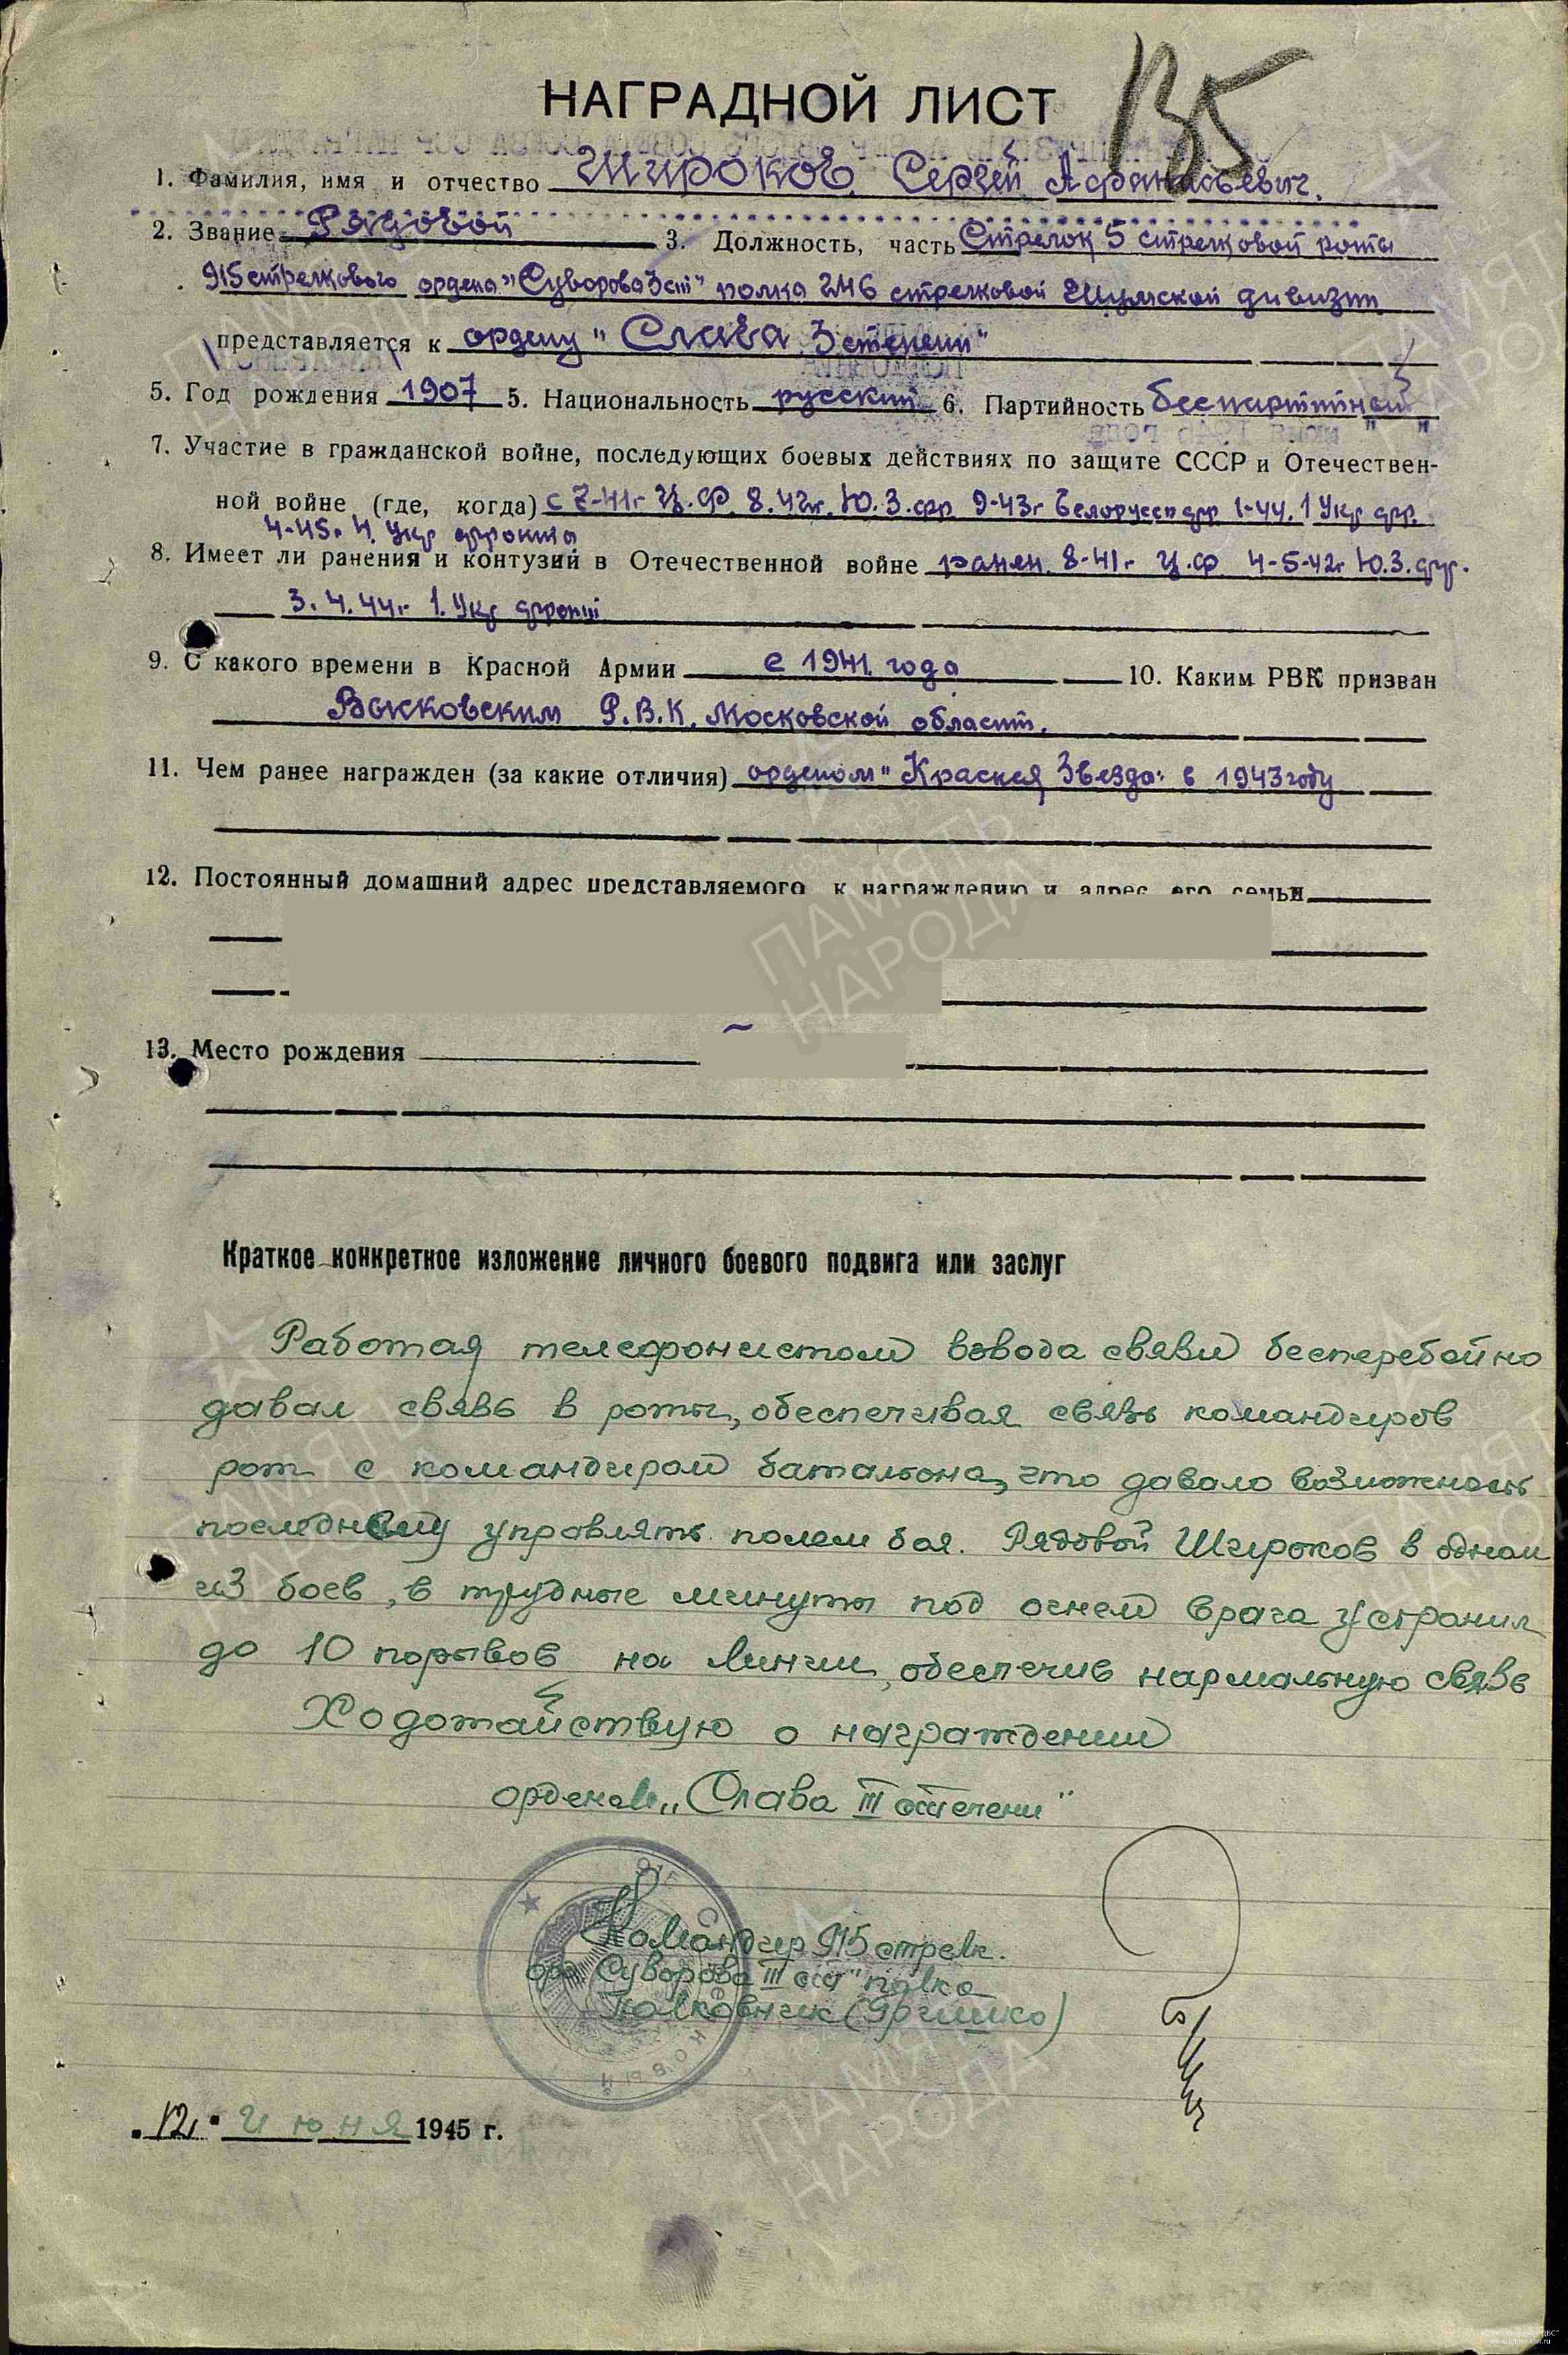 135
НАГРАДНОЙ ЛИСТ
1. Фамилия, имя и отчество Широков Сергей Афанасьевич.
2. Звание Рядовой 3. Должность, часть Стрелок 5 стрелковой роты
915 стрелкового ордена "Суворова 3 ст" полка 246 стрелковой дивизии
представляется к ордену "Слава 3 степени"
5. Год рождения 1907 5. Национальность русский 6. Партийность беспартийный
7. Участие в гражданской войне, последующих боевых действиях по защите СССР и Отечествен-
ной войне (где, когда) с 7-41г. Ц.Ф. 8.42г. Ю.З.фр 9-43г Белорусск фр 1-44. 1 Укр фр.
4-45г. 4. Укр фронта
8. Имеет ли ранения и контузии в Отечественной войне ранен. 8-41г. Ц.Ф 4-5-42г Ю.З.фр.
3.4.44г. 1.Укр фронт
9. С какого времени в Красной Армии с 1941 года 10. Каким РВК призван
Р.В.К. Московской области.
11. Чем ранее награжден (за какие отличия) орденом "Красная Звезда" в 1943 году
12. Постоянный домашний адрес представляемого к награждению и адрес его семьи
13. Место рождения
Краткое конкретное изложение личного боевого подвига или заслуг
Работая телефонистом взвода связи бесперебойно
давал связь в роты, обеспечивая связь командиров
рот с командиром батальона, что давало возможность
последнему управлять полем боя. Рядовой Широков в одном
из боев, в трудные минуты под огнем врага устранил
до 10 порывов на линии, обеспечив нармальную связь
Ходотайствую о награждении
орденом „Слава III степени"
Командир 915 стрелк.
орд Суворова III ст" полка
Полковник
"12" июня 1945 г.
ПАМЯТЬ НАРОДА